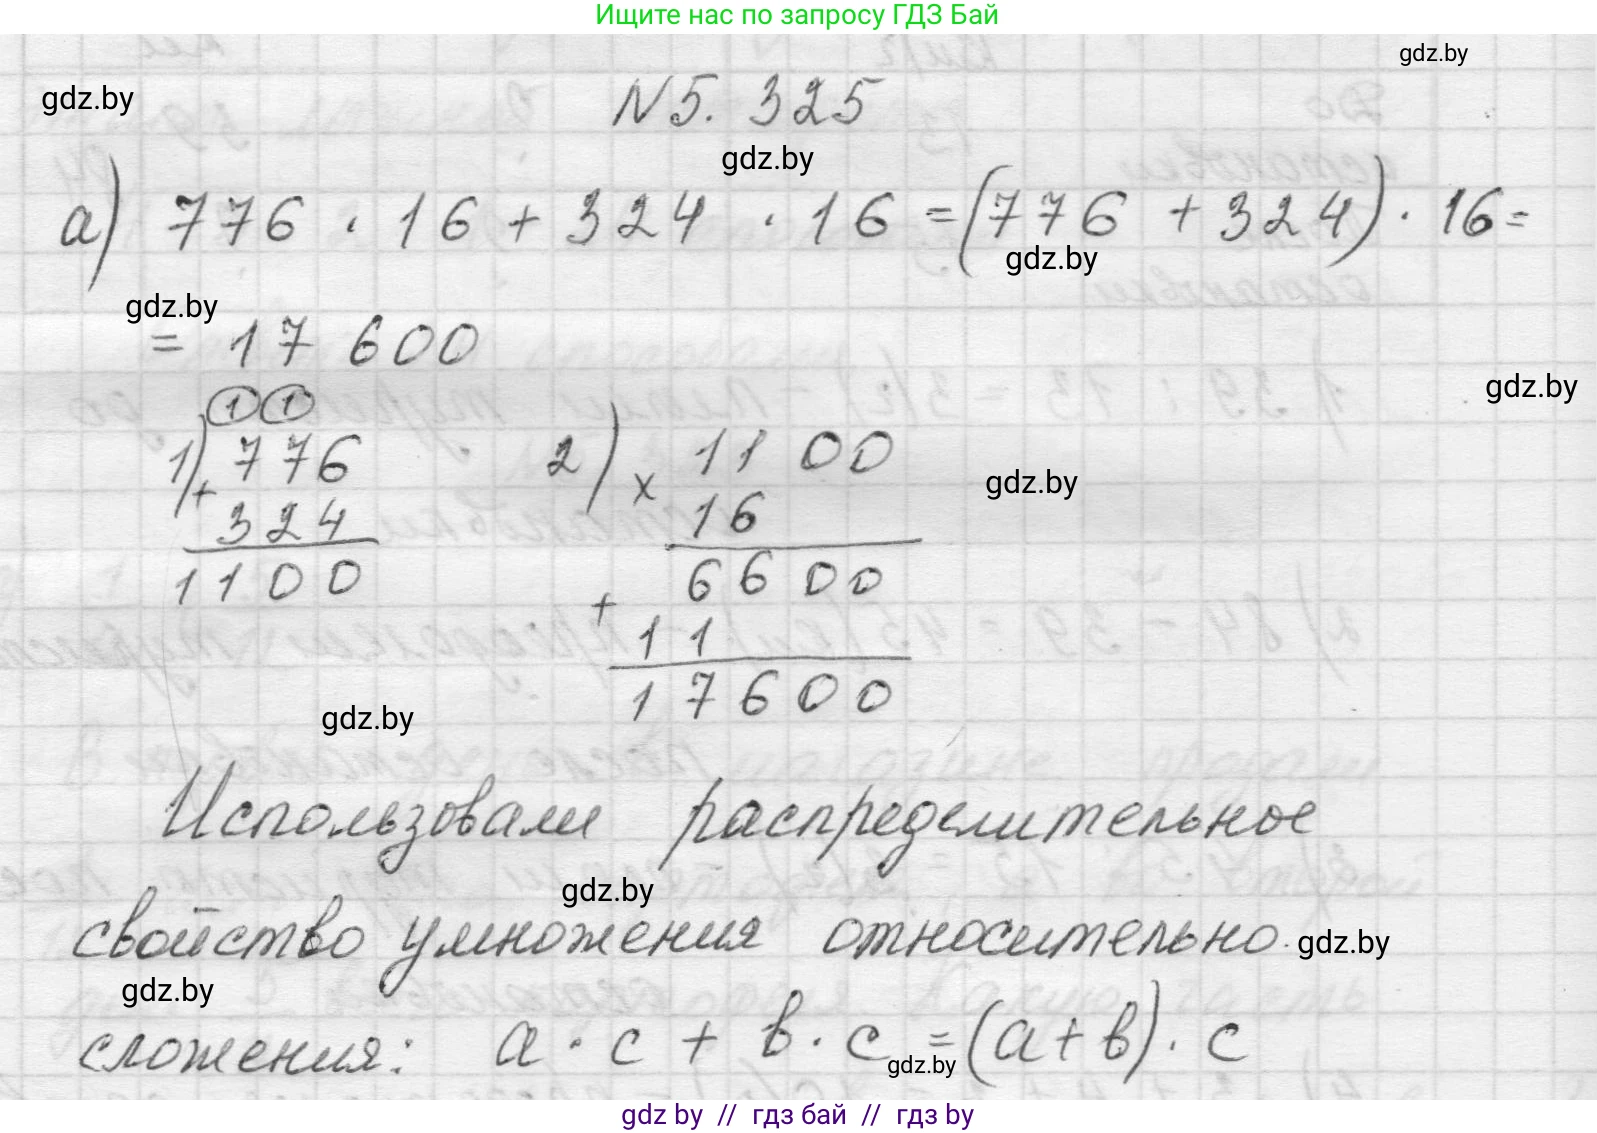 Ищите нас по запросу ГДЗ Бай
gdz.by
gdz.by
N 5. 325
gdz.by
а) 776 · 16 + 324 · 16 = (776 + 324) · 16 =
gdz.by
gdz.by
= 17 600
gdz.by
1 1
1) 776 2) × 1100
gdz.by
+ 324 16
1100 6600
+ 11
17600
gdz.by
Использовали распределительное
gdz.by
свойство умножения относительно
gdz.by
gdz.by
сложения: a · c + b · c = (a + b) · c
gdz.by
gdz by // гдз бай // gdz by